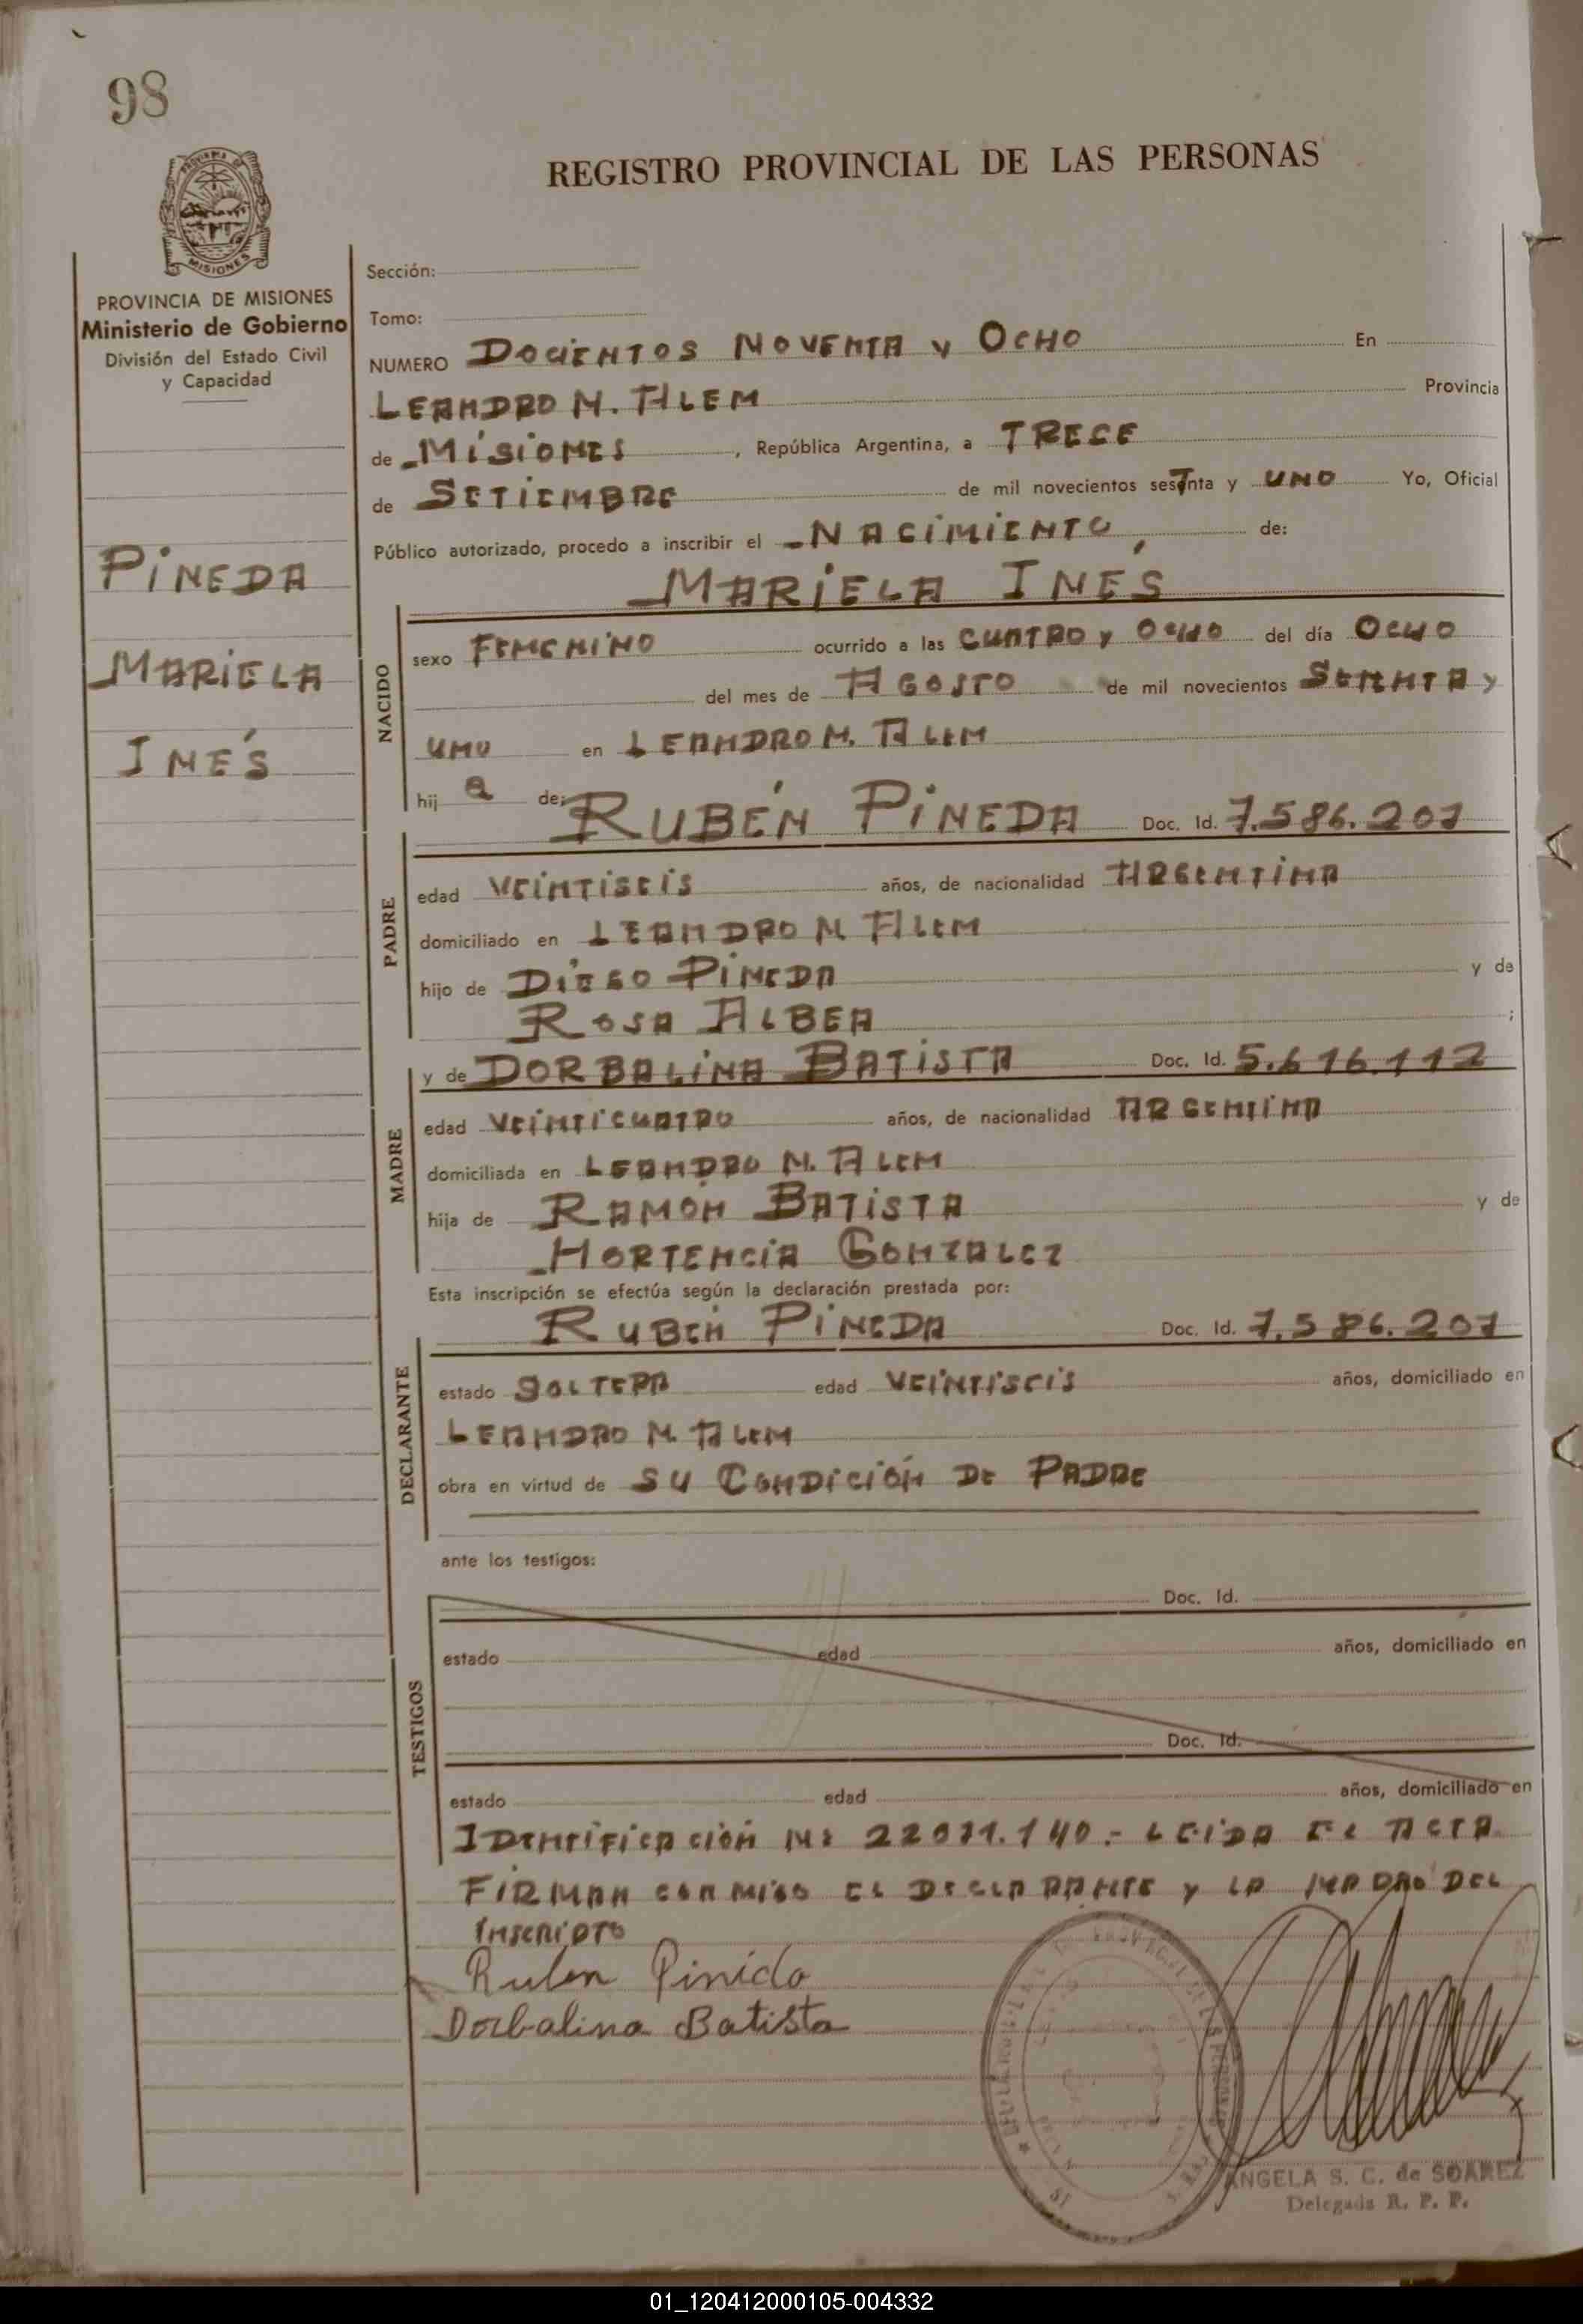 98
REGISTRO PROVINCIAL DE LAS PERSONAS
MISIONES
PROVINCIA DE MISIONES
Ministerio de Gobierno
División del Estado Civil
y Capacidad
PINEDA
MARIELA
INÉS
Sección:
Tomo:
NUMERO DOCIENTOS NOVENTA y OCHO En
LEANDRO N. ALEM Provincia
de MISIONES, República Argentina, a TRECE
de SETIEMBRE de mil novecientos sesTnta y UNO Yo, Oficial
Público autorizado, procedo a inscribir el NACIMIENTO, de:
MARIELA INÉS
NACIDO
sexo FEMENINO ocurrido a las CUATRO y OCHO del día OCHO
del mes de AGOSTO de mil novecientos SETENTA y
UNO en LEANDRO N. ALEM
hij a de: RUBÉN PINEDA Doc. Id. 7.586.207
PADRE
edad VEINTISEIS años, de nacionalidad ARGENTINA
domiciliado en LEANDRO N ALEM
hijo de DIEGO PINEDA y de
ROSA ALBEA ;
y de DORBALINA BATISTA Doc. Id. 5.616.112
MADRE
edad VEINTICUATRO años, de nacionalidad ARGENTINA
domiciliada en LEANDRO N. ALEM
hija de RAMÓN BATISTA y de
HORTENCIA GONZALEZ
Esta inscripción se efectúa según la declaración prestada por:
RUBEN PINEDA Doc. Id. 7.586.207
DECLARANTE
estado SOLTERA edad VEINTISEIS años, domiciliado en
LEANDRO N. ALEM
obra en virtud de SU CONDICIÓN DE PADRE
ante los testigos:
TESTIGOS
Doc. Id.
estado edad años, domiciliado en
Doc. Id.
estado edad años, domiciliado en
IDENTIFICACIÓN Nº 22071.140.- LEIDA EL ACTA
FIRMAN CONMIGO EL DECLARANTE y LA MADRE DEL
INSCRIPTO
Ruben Pinida
Dorbalina Batista
ANGELA S. C. de SOAREZ
Delegada R. P. P.
01_120412000105-004332